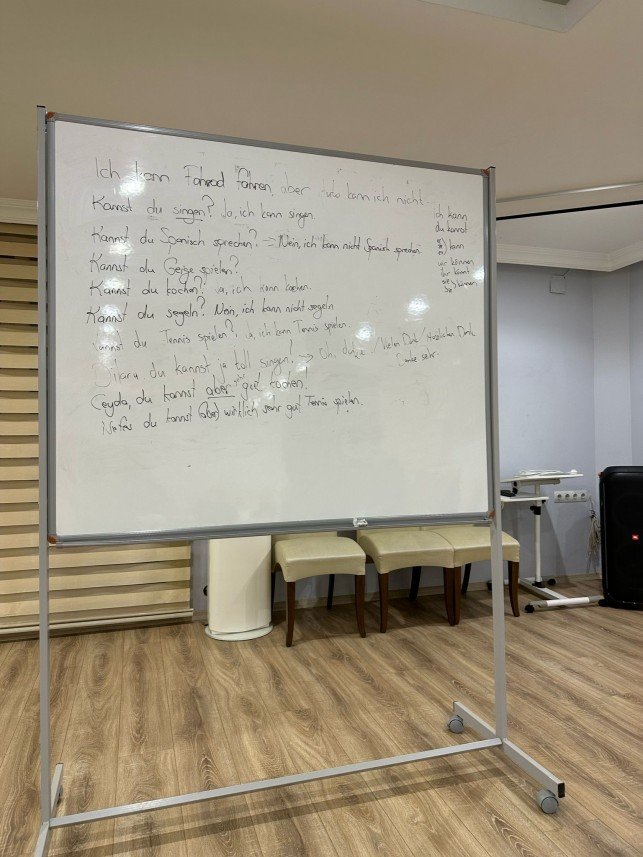 Ich kann Fahrrad fahren, aber kann ich nicht
Kannst du singen? Ja, ich kann singen.
Kannst du Spanisch sprechen? → Nein, ich kann nicht Spanisch sprechen
Kannst du Geige spielen?
Kannst du kochen? Ja, ich kann kochen.
Kannst du segeln? Nein, ich kann nicht segeln
Kannst du Tennis spielen? Ja, ich kann Tennis spielen.
Dilara du kannst ja toll singen! → Oh, danke / Vielen Dank / Herzlichen Dank
Danke sehr.
Ceyda, du kannst aber gut kochen.
du kannst (aber) wirklich sehr gut Tennis spielen.
ich kann
du kannst
er
sie
es } kann
wir können
ihr könnt
sie
Sie } können
JBL